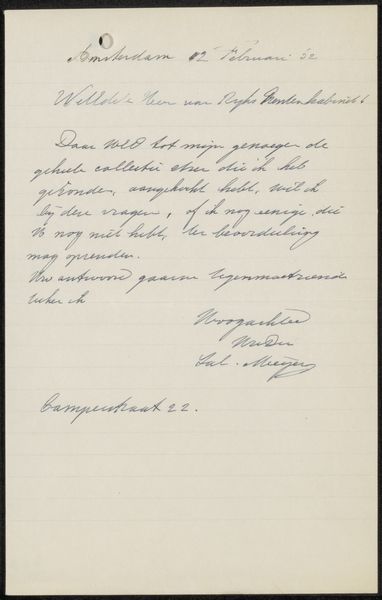 Amsterdam 12 Februari 52
Weledele Heer van Ryks Prentenkabinet
Daar UEd tot mijn genoegen de
geheele collectie etsen die ik heb
gezonden, aangekocht hebt, wil ik
bij deze vragen, of ik nog eenige, die
U nog niet hebt, ter beoordeeling
mag opzenden.
Uw antwoord gaarne tegemoetziende
teken ik
Hoogachtend
UwDr
Sal. Meijer
Camperstraat 22.